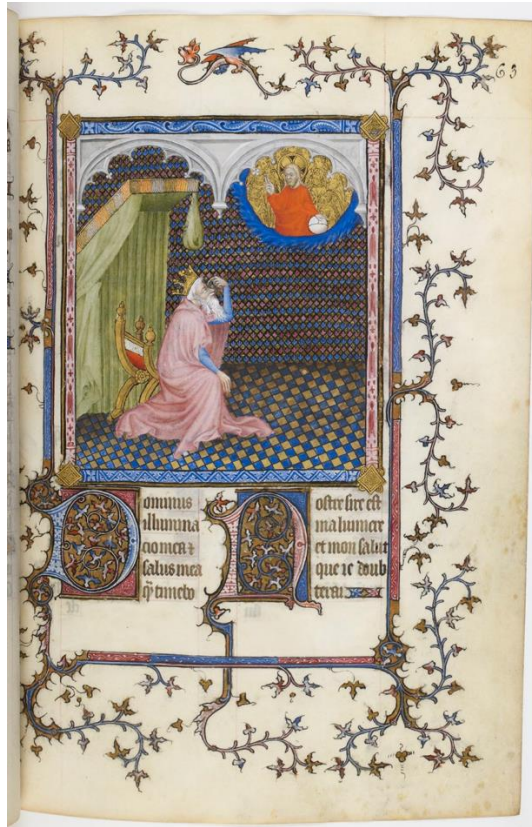 63
Dominus
illumina
cio mea ⁊
salus mea
q̄ timebo
Nostre sire est
ma lumiere
et mon salut
que ie doub
terai